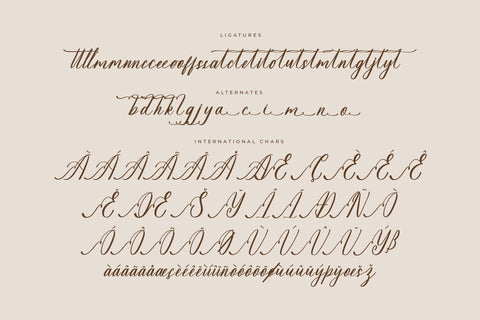 LIGATURES
ttllmmnncceeooffssatctetitotutstmtntgtjtyt
ALTERNATES
bdhklgjyacimno
INTERNATIONAL CHARS
ÀÁÂÃÄÅÆÇÈÉÊ
ËŒŠŸÌÍÐÑÒ
ÓÔÕÖØÙÚÛÜÝß
àáâãäåæçèéêëìíîïñòóôõöøùúûüýþÿœšž